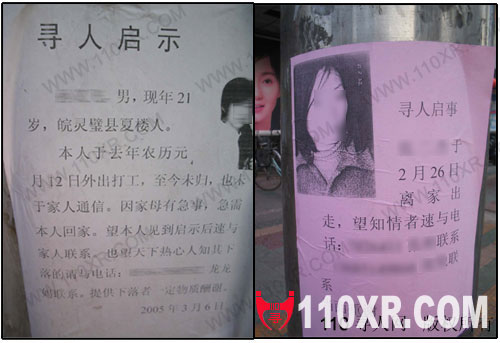 寻人启示
男，现年21
岁，皖灵璧县夏楼人。
本人于去年农历元
月12日外出打工，至今未归，也未
于家人通信。因家母有急事，急需
本人回家。望本人见到启示后速与
家人联系，也望天下热心人知其下
落的请与电话：龙龙
联系。提供下落者一定物质酬谢。
2005年3月6日
寻人启事
于
2月26日
离家出
走，望知情者速与电
话：联系
联
系
110XR.COM
WWW.110XR.COM